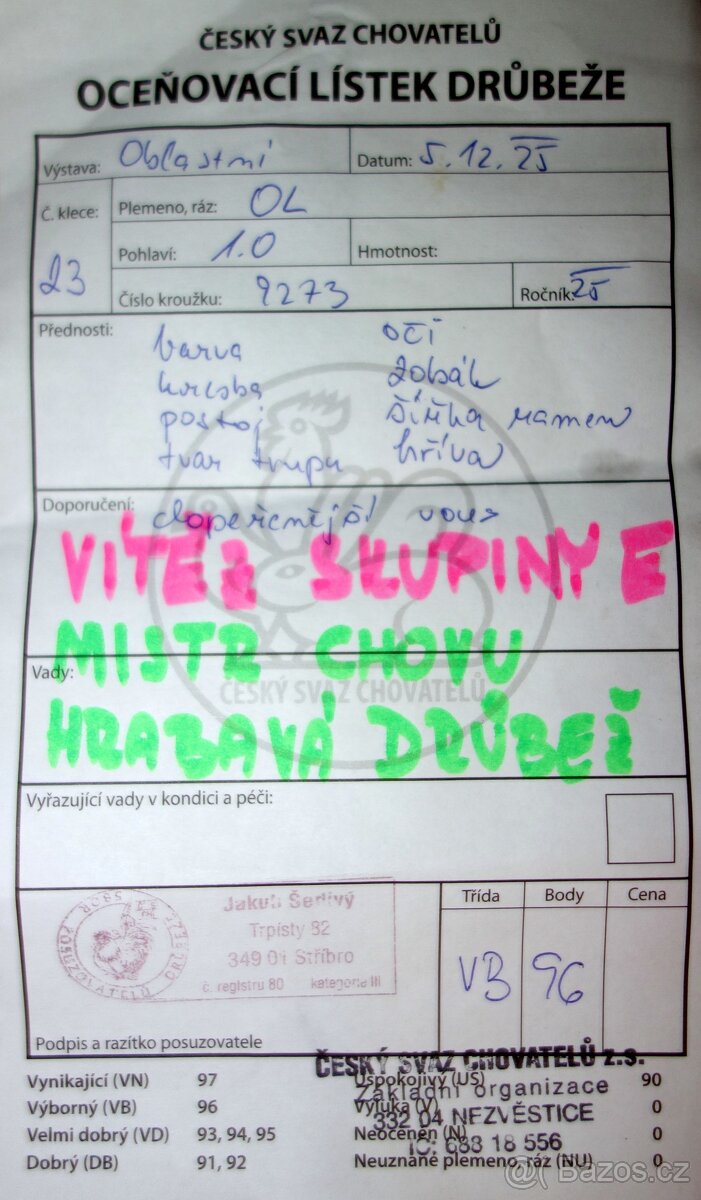 ČESKÝ SVAZ CHOVATELŮ
OCEŇOVACÍ LÍSTEK DRŮBEŽE
Výstava: Oblastní Datum: 5.12.25
Č. klece: 23
Plemeno, ráz: OL
Pohlaví: 1.0 Hmotnost:
Číslo kroužku: 9273 Ročník: 25
Přednosti:
barva oči
kresba zobák
postoj šířka ramen
tvar trupu hříva
Doporučení: dopeřenější vous
VÍTĚZ SKUPINY E
MISTR CHOVU
Vady:
ČESKÝ SVAZ CHOVATELŮ
HRABAVÁ DRŮBEŽ
Vyřazující vady v kondici a péči:
SBOR POSUZOVATELŮ DRŮBEŽE
Jakub Šedivý
Trpísty 32
349 01 Stříbro
č. registru 80 kategorie III
Podpis a razítko posuzovatele
Třída Body Cena
VB 96
ČESKÝ SVAZ CHOVATELŮ z.s.
Základní organizace
332 04 NEZVĚSTICE
IČ: 688 18 556
Vynikající (VN) 97
Výborný (VB) 96
Velmi dobrý (VD) 93, 94, 95
Dobrý (DB) 91, 92
Uspokojivý (US) 90
Výluka (V) 0
Neoceněn (N) 0
Neuznané plemeno, ráz (NU) 0
@( Bazos.cz